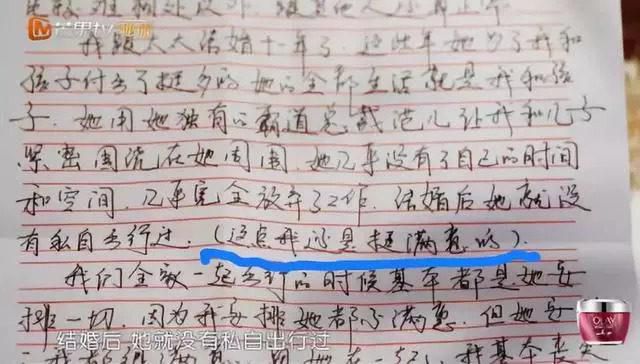 芒果TV
我跟太太结婚十一年了，这些年她为了我和
孩子付出了挺多的，她的全部生活就是我和孩
子，她用她独有的霸道总裁范儿让我和儿子
紧密围绕在她周围，她几乎没有了自己的时间
和空间，几乎完全放弃了工作，结婚后她就没
有私自出行过，（这点我还是挺满意的）。
我们全家一起出行的时候基本都是她安
排一切，因为我安排她都不满意，但她安
结婚后 她就没有私自出行过
OLAY